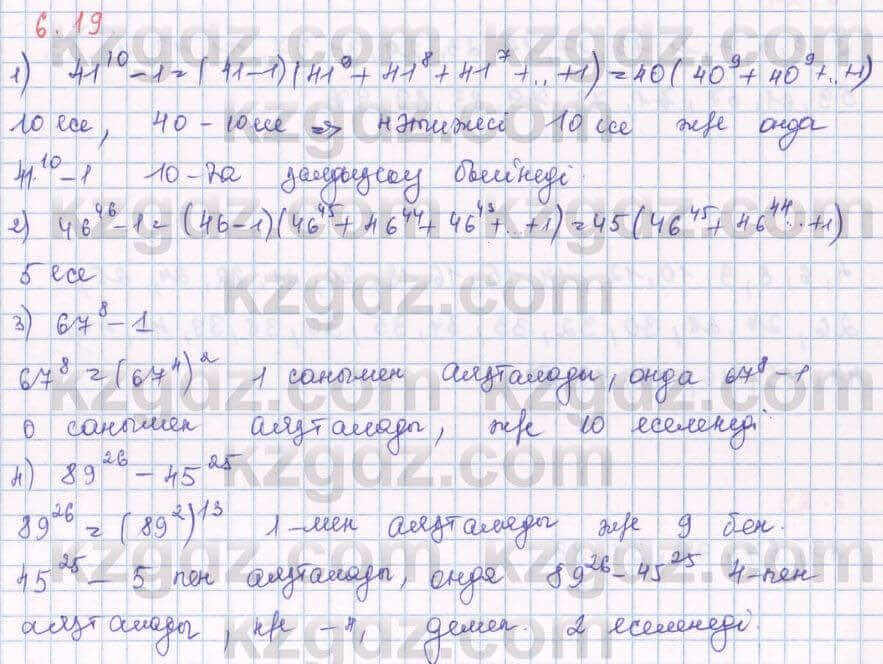 6.19
1) 41¹⁰ - 1 = (41-1)(41⁹ + 41⁸ + 41⁷ + .. +1) = 40(40⁹ + 40⁹ + .. +1)
10 есе, 40 - 10 есе => нәтижесі 10 есе және онда
41¹⁰ - 1 10-ға қалдықсыз бөлінеді.
2) 46⁴⁶ - 1 = (46-1)(46⁴⁵ + 46⁴⁴ + 46⁴³ + .. +1) = 45(46⁴⁵ + 46⁴⁴ .. +1)
5 есе
3) 67⁸ - 1
67⁸ = (67⁴)² 1 санымен аяқталады, онда 67⁸ - 1
0 санымен аяқталады, және 10 еселенеді.
4) 89²⁶ - 45²⁵
89²⁶ = (89²)¹³ 1-мен аяқталады және 9 бен.
45²⁵ - 5 пен аяқталады, онда 89²⁶ - 45²⁵ 4-пен
аяқталады, - 4, демек. 2 еселенеді.
kzgdz.com